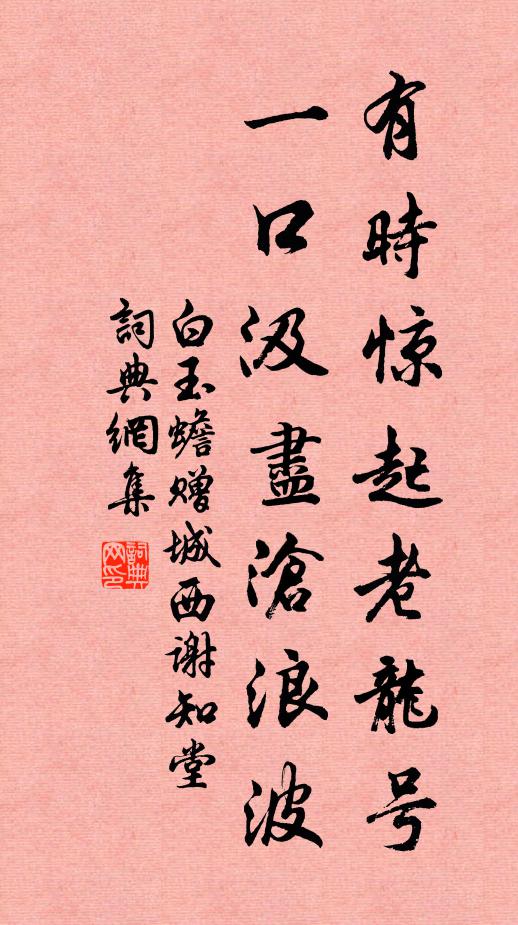 有時惊起老龍号
一口汲盡滄浪波
白玉蟾赠城西谢知堂
詞典網集
詞典网印